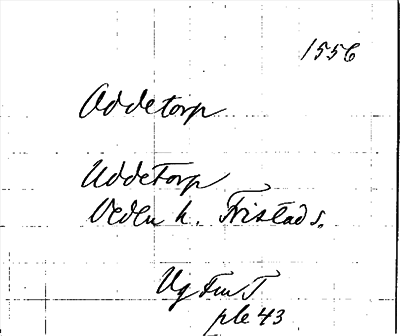 1556
Oddetorp
Uddetorp
Vedens h. Fristads.
Vg Fm T
ple 43